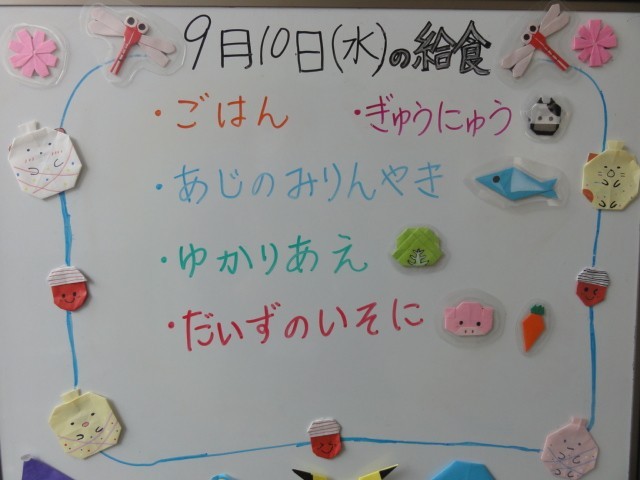 9月10日(水)の給食
・ごはん ・ぎゅうにゅう
・あじのみりんやき
・ゆかりあえ
・だいずのいそに